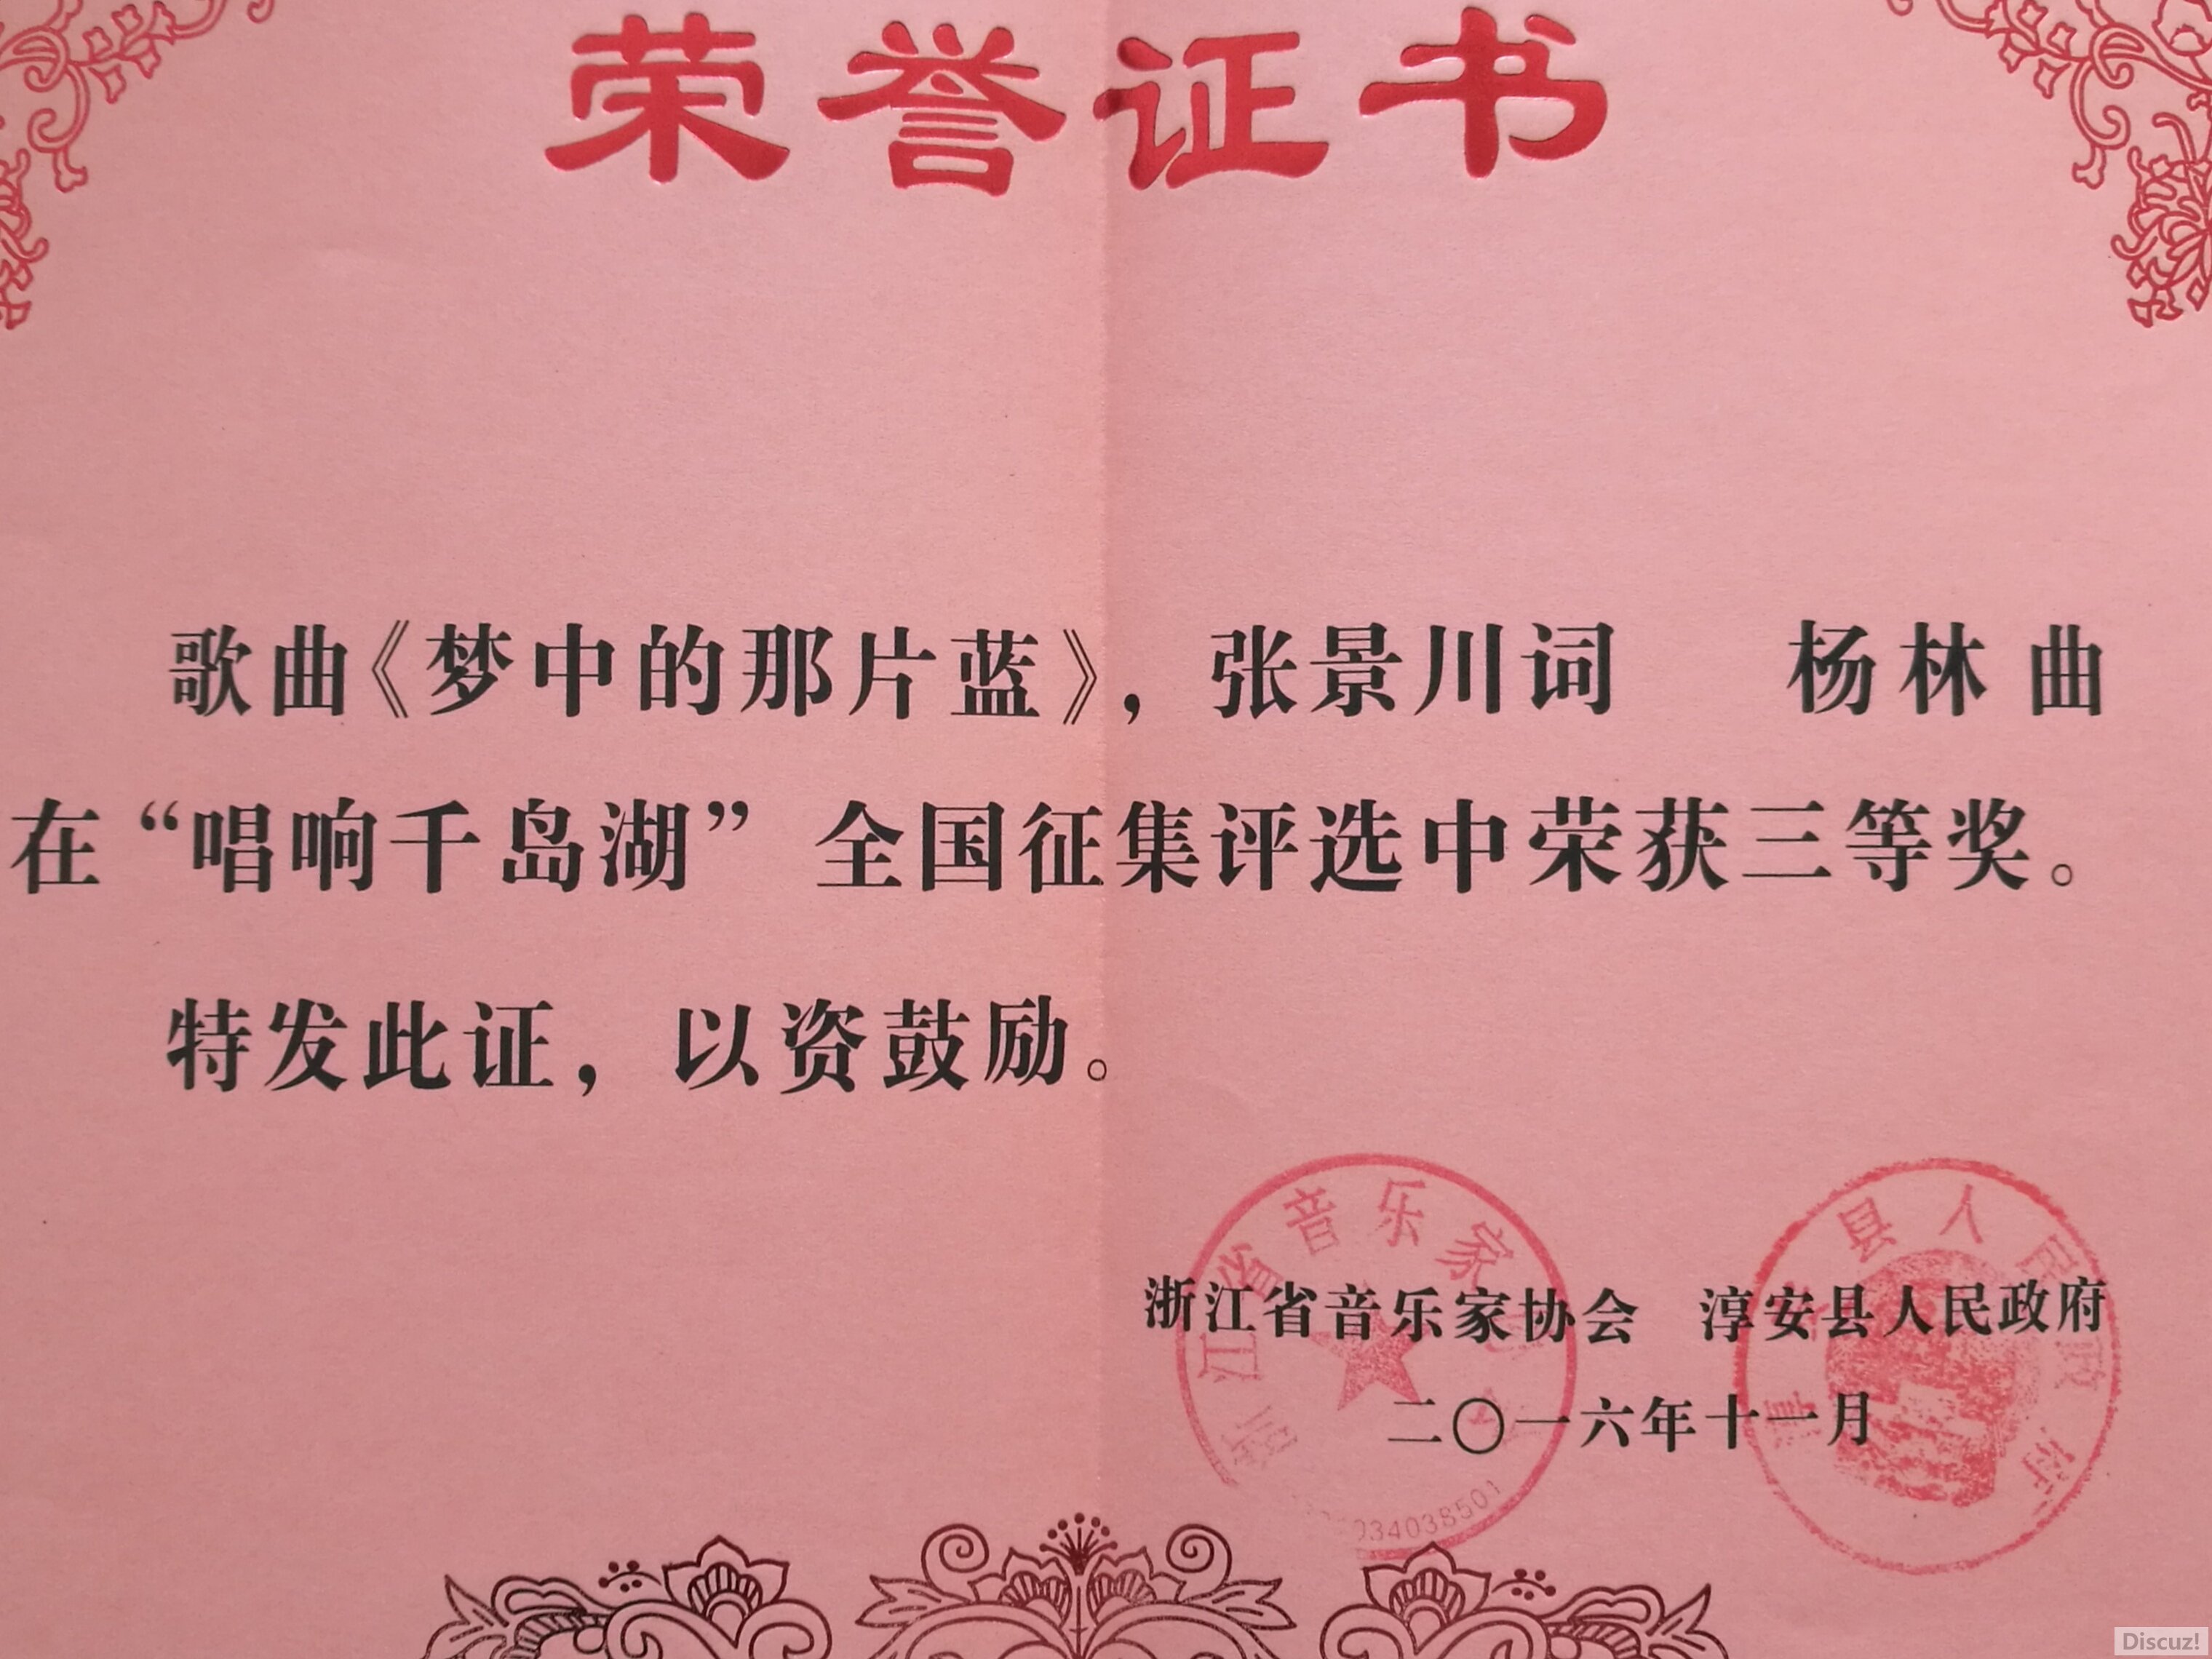 荣誉证书
歌曲《梦中的那片蓝》，张景川词 杨林曲
在“唱响千岛湖”全国征集评选中荣获三等奖。
特发此证，以资鼓励。
浙江省音乐家协会 淳安县人民政府
二〇一六年十一月
江省音乐家
县人民政府
34038501
Discuz!